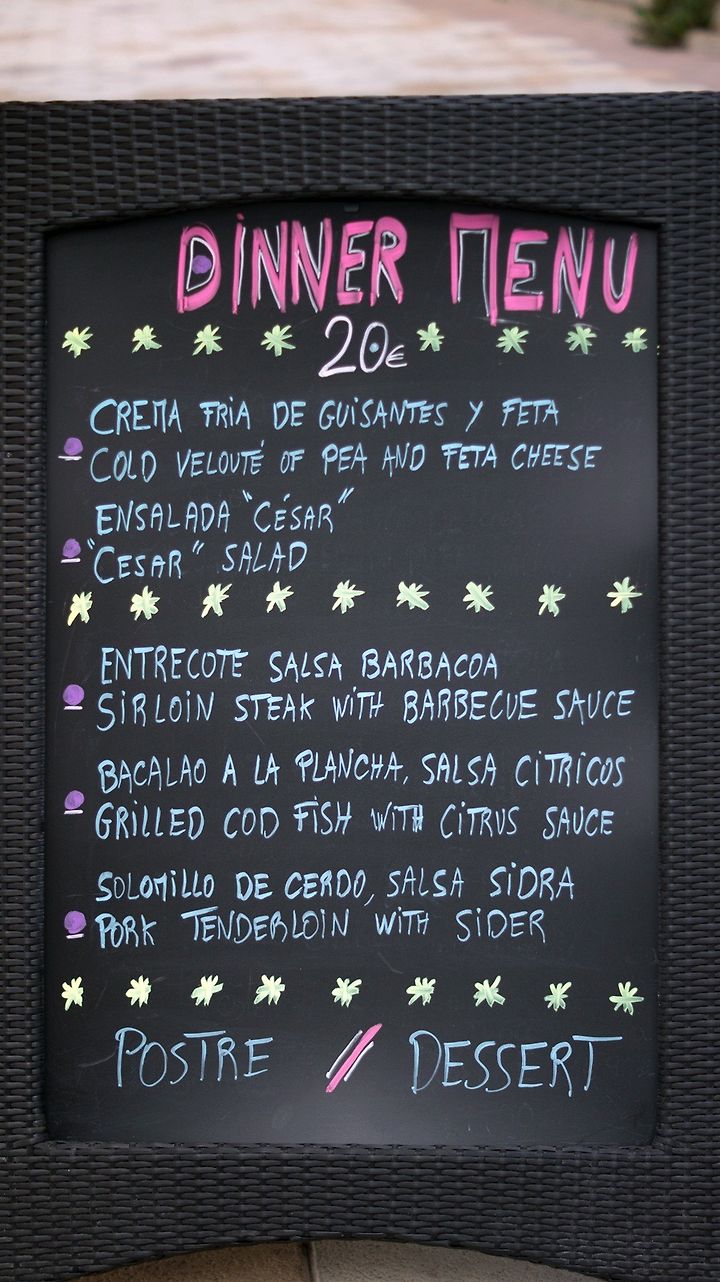 DINNER MENU
20€
CREMA FRIA DE GUISANTES Y FETA
COLD VELOUTÉ OF PEA AND FETA CHEESE
ENSALADA "CÉSAR"
"CESAR" SALAD
ENTRECOTE SALSA BARBACOA
SIRLOIN STEAK WITH BARBECUE SAUCE
BACALAO A LA PLANCHA, SALSA CITRICOS
GRILLED COD FISH WITH CITRUS SAUCE
SOLOMILLO DE CERDO, SALSA SIDRA
PORK TENDERLOIN WITH SIDER
POSTRE // DESSERT